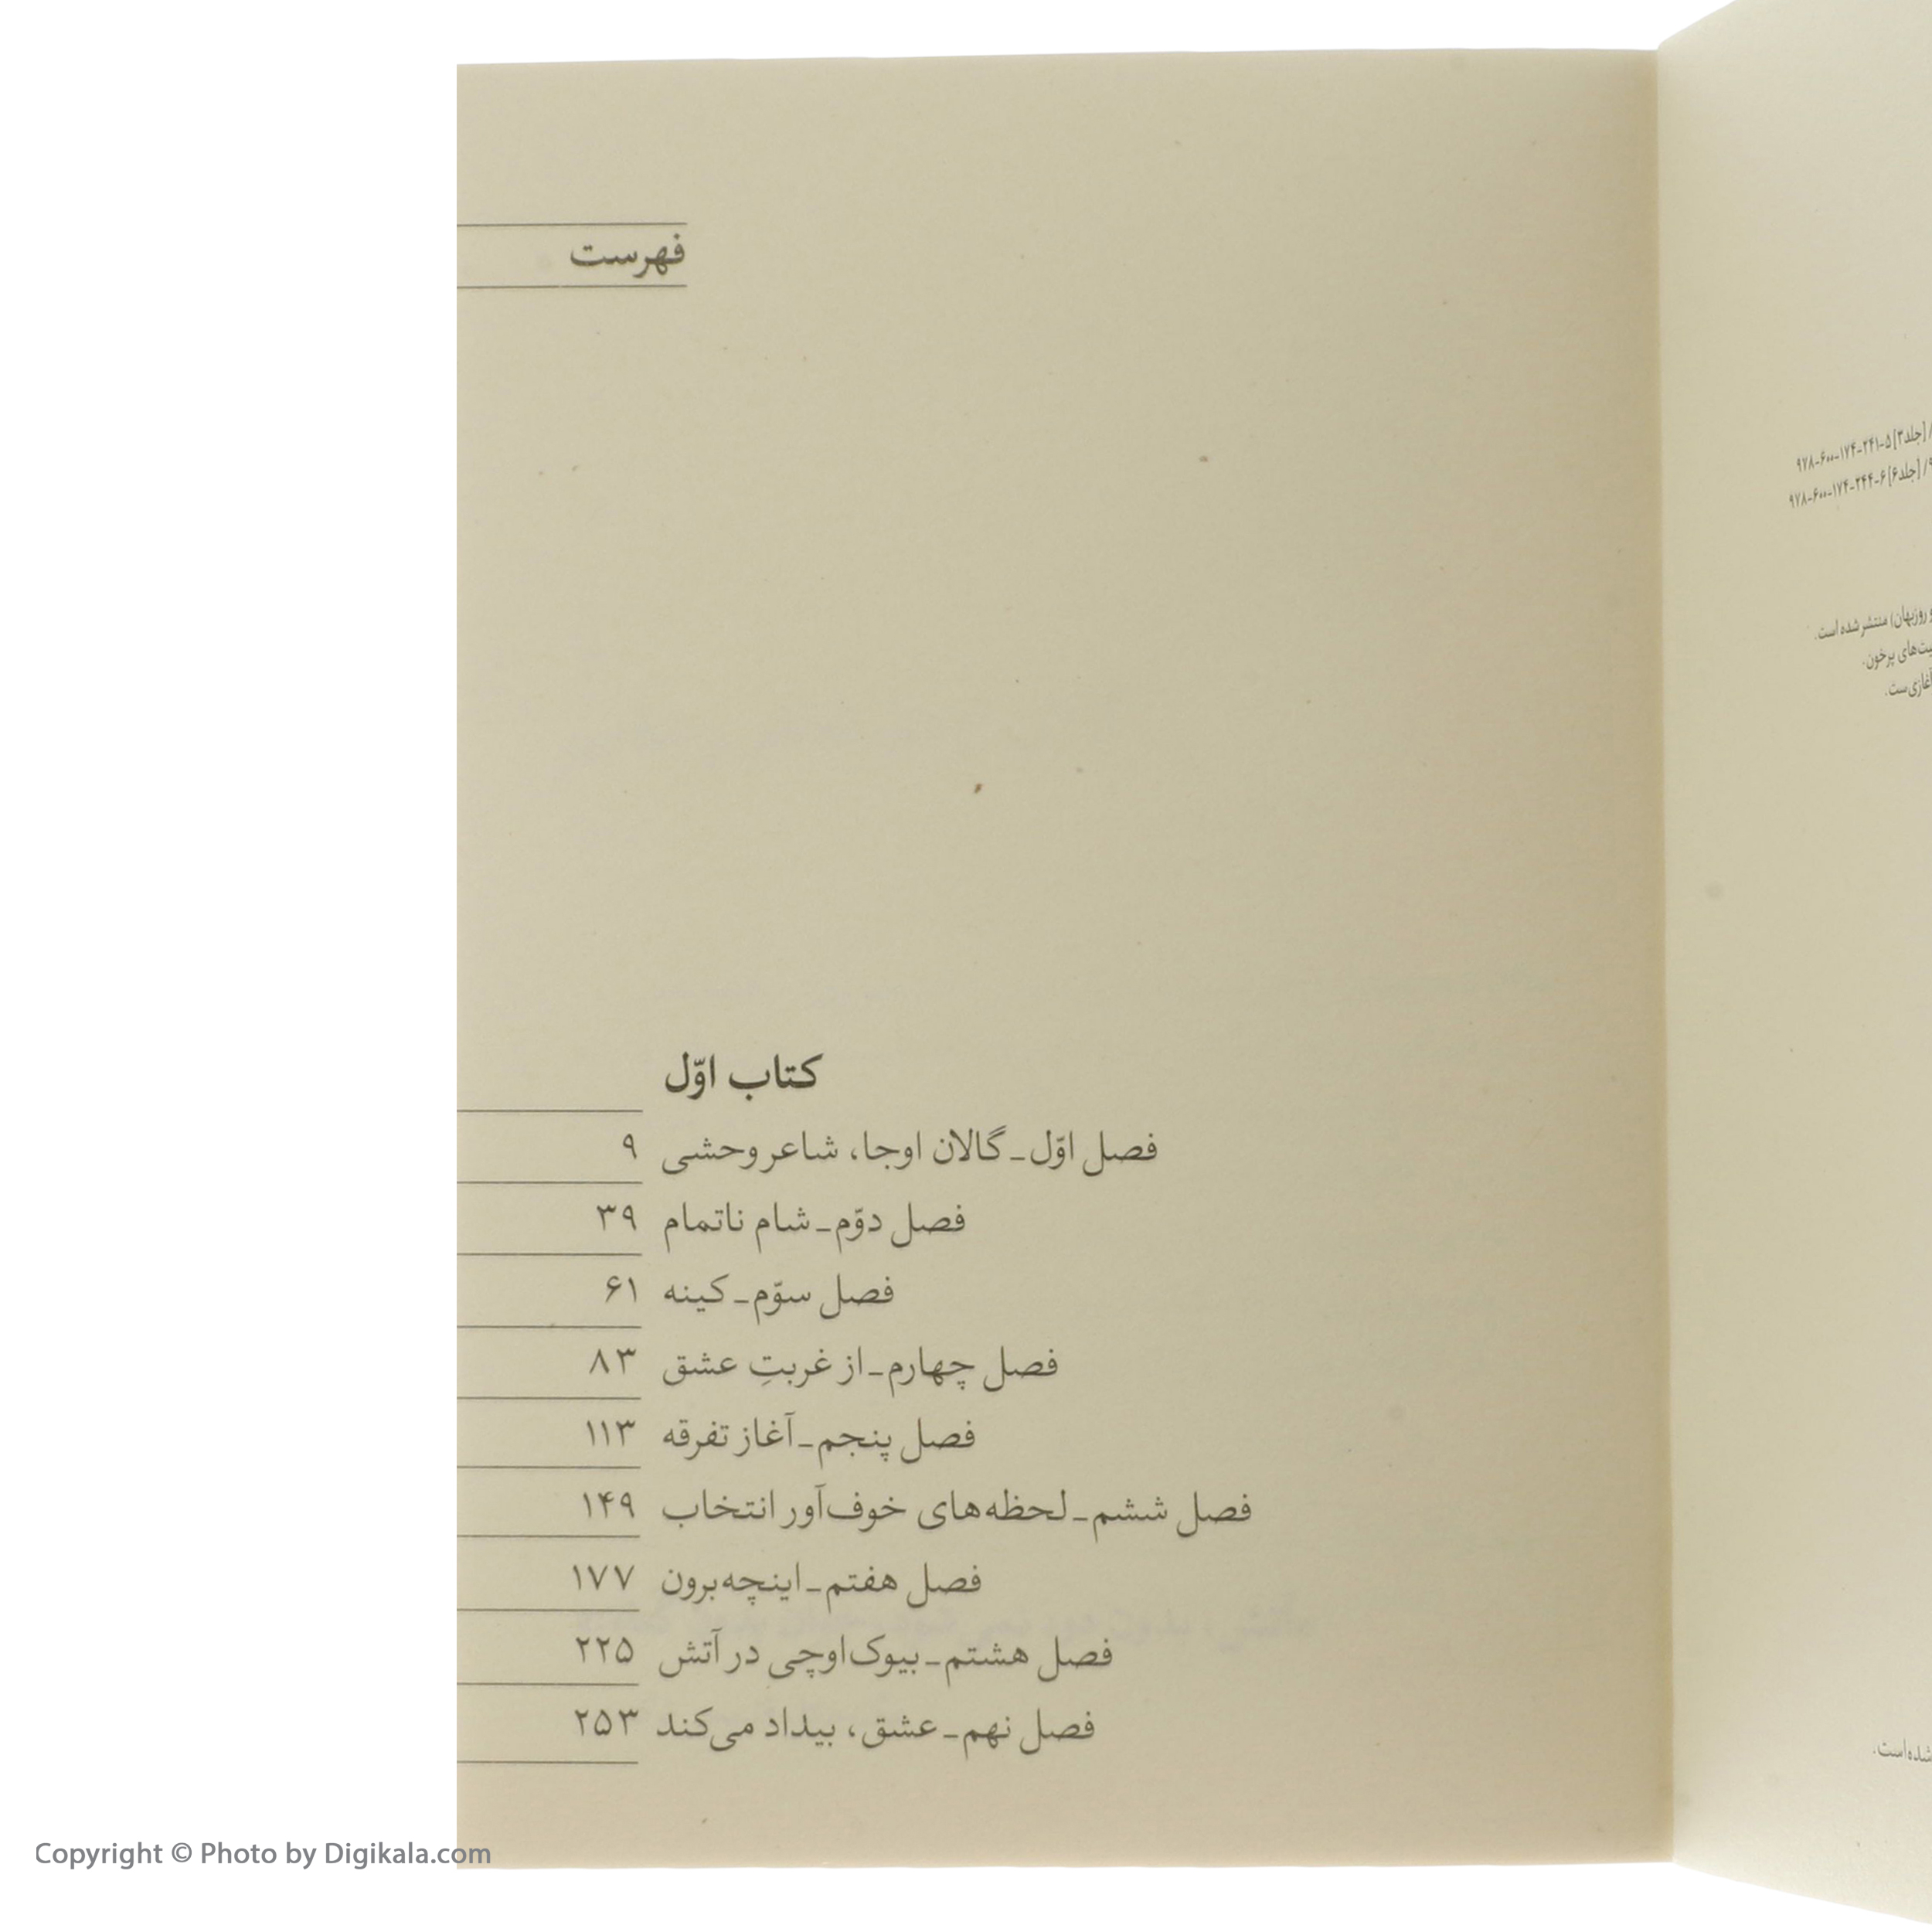 / [جلد۳] ۵-۲۴۱-۱۷۴-۶۰۰-۹۷۸
/ [جلد۶] ۶-۲۴۴-۱۷۴-۶۰۰-۹۷۸
و روزبهان) منتشر شده است.
پرخون.
آغازی‌ست.
شده‌است.
فهرست
کتاب اوّل
فصل اوّل ـ گالان اوجا، شاعر وحشی ۹
فصل دوّم ـ شام ناتمام ۳۹
فصل سوّم ـ کینه ۶۱
فصل چهارم ـ از غربتِ عشق ۸۳
فصل پنجم ـ آغاز تفرقه ۱۱۳
فصل ششم ـ لحظه‌های خوف‌آور انتخاب ۱۴۹
فصل هفتم ـ اینچه‌برون ۱۷۷
فصل هشتم ـ بیوک‌اوچی در آتش ۲۲۵
فصل نهم ـ عشق، بیداد می‌کند ۲۵۳
Copyright © Photo by Digikala.com